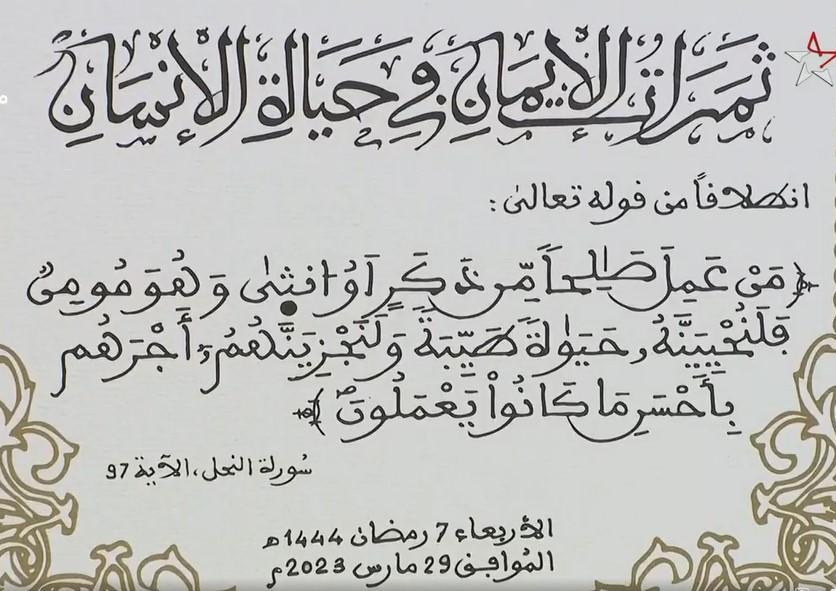 ثَمَرَاتُ الْإِيمَانِ فِي حَيَاةِ الْإِنْسَانِ
انطلاقاً من قوله تعالىٰ :
﴿ مَنْ عَمِلَ صَٰلِحاً مِّن ذَكَرٍ اَوُ انثۭىٰ وَهُوَ مُومِنٌ
فَلَنُحْيِيَنَّهُۥ حَيَوٰةً طَيِّبَةً وَلَنَجْزِيَنَّهُمُۥٓ أَجْرَهُم
بِأَحْسَنِ مَا كَانُواْ يَعْمَلُونَ ﴾
سُورة النحل، الآية 97
الأربعاء 7 رمضان 1444ه
المُوافق 29 مارس 2023م